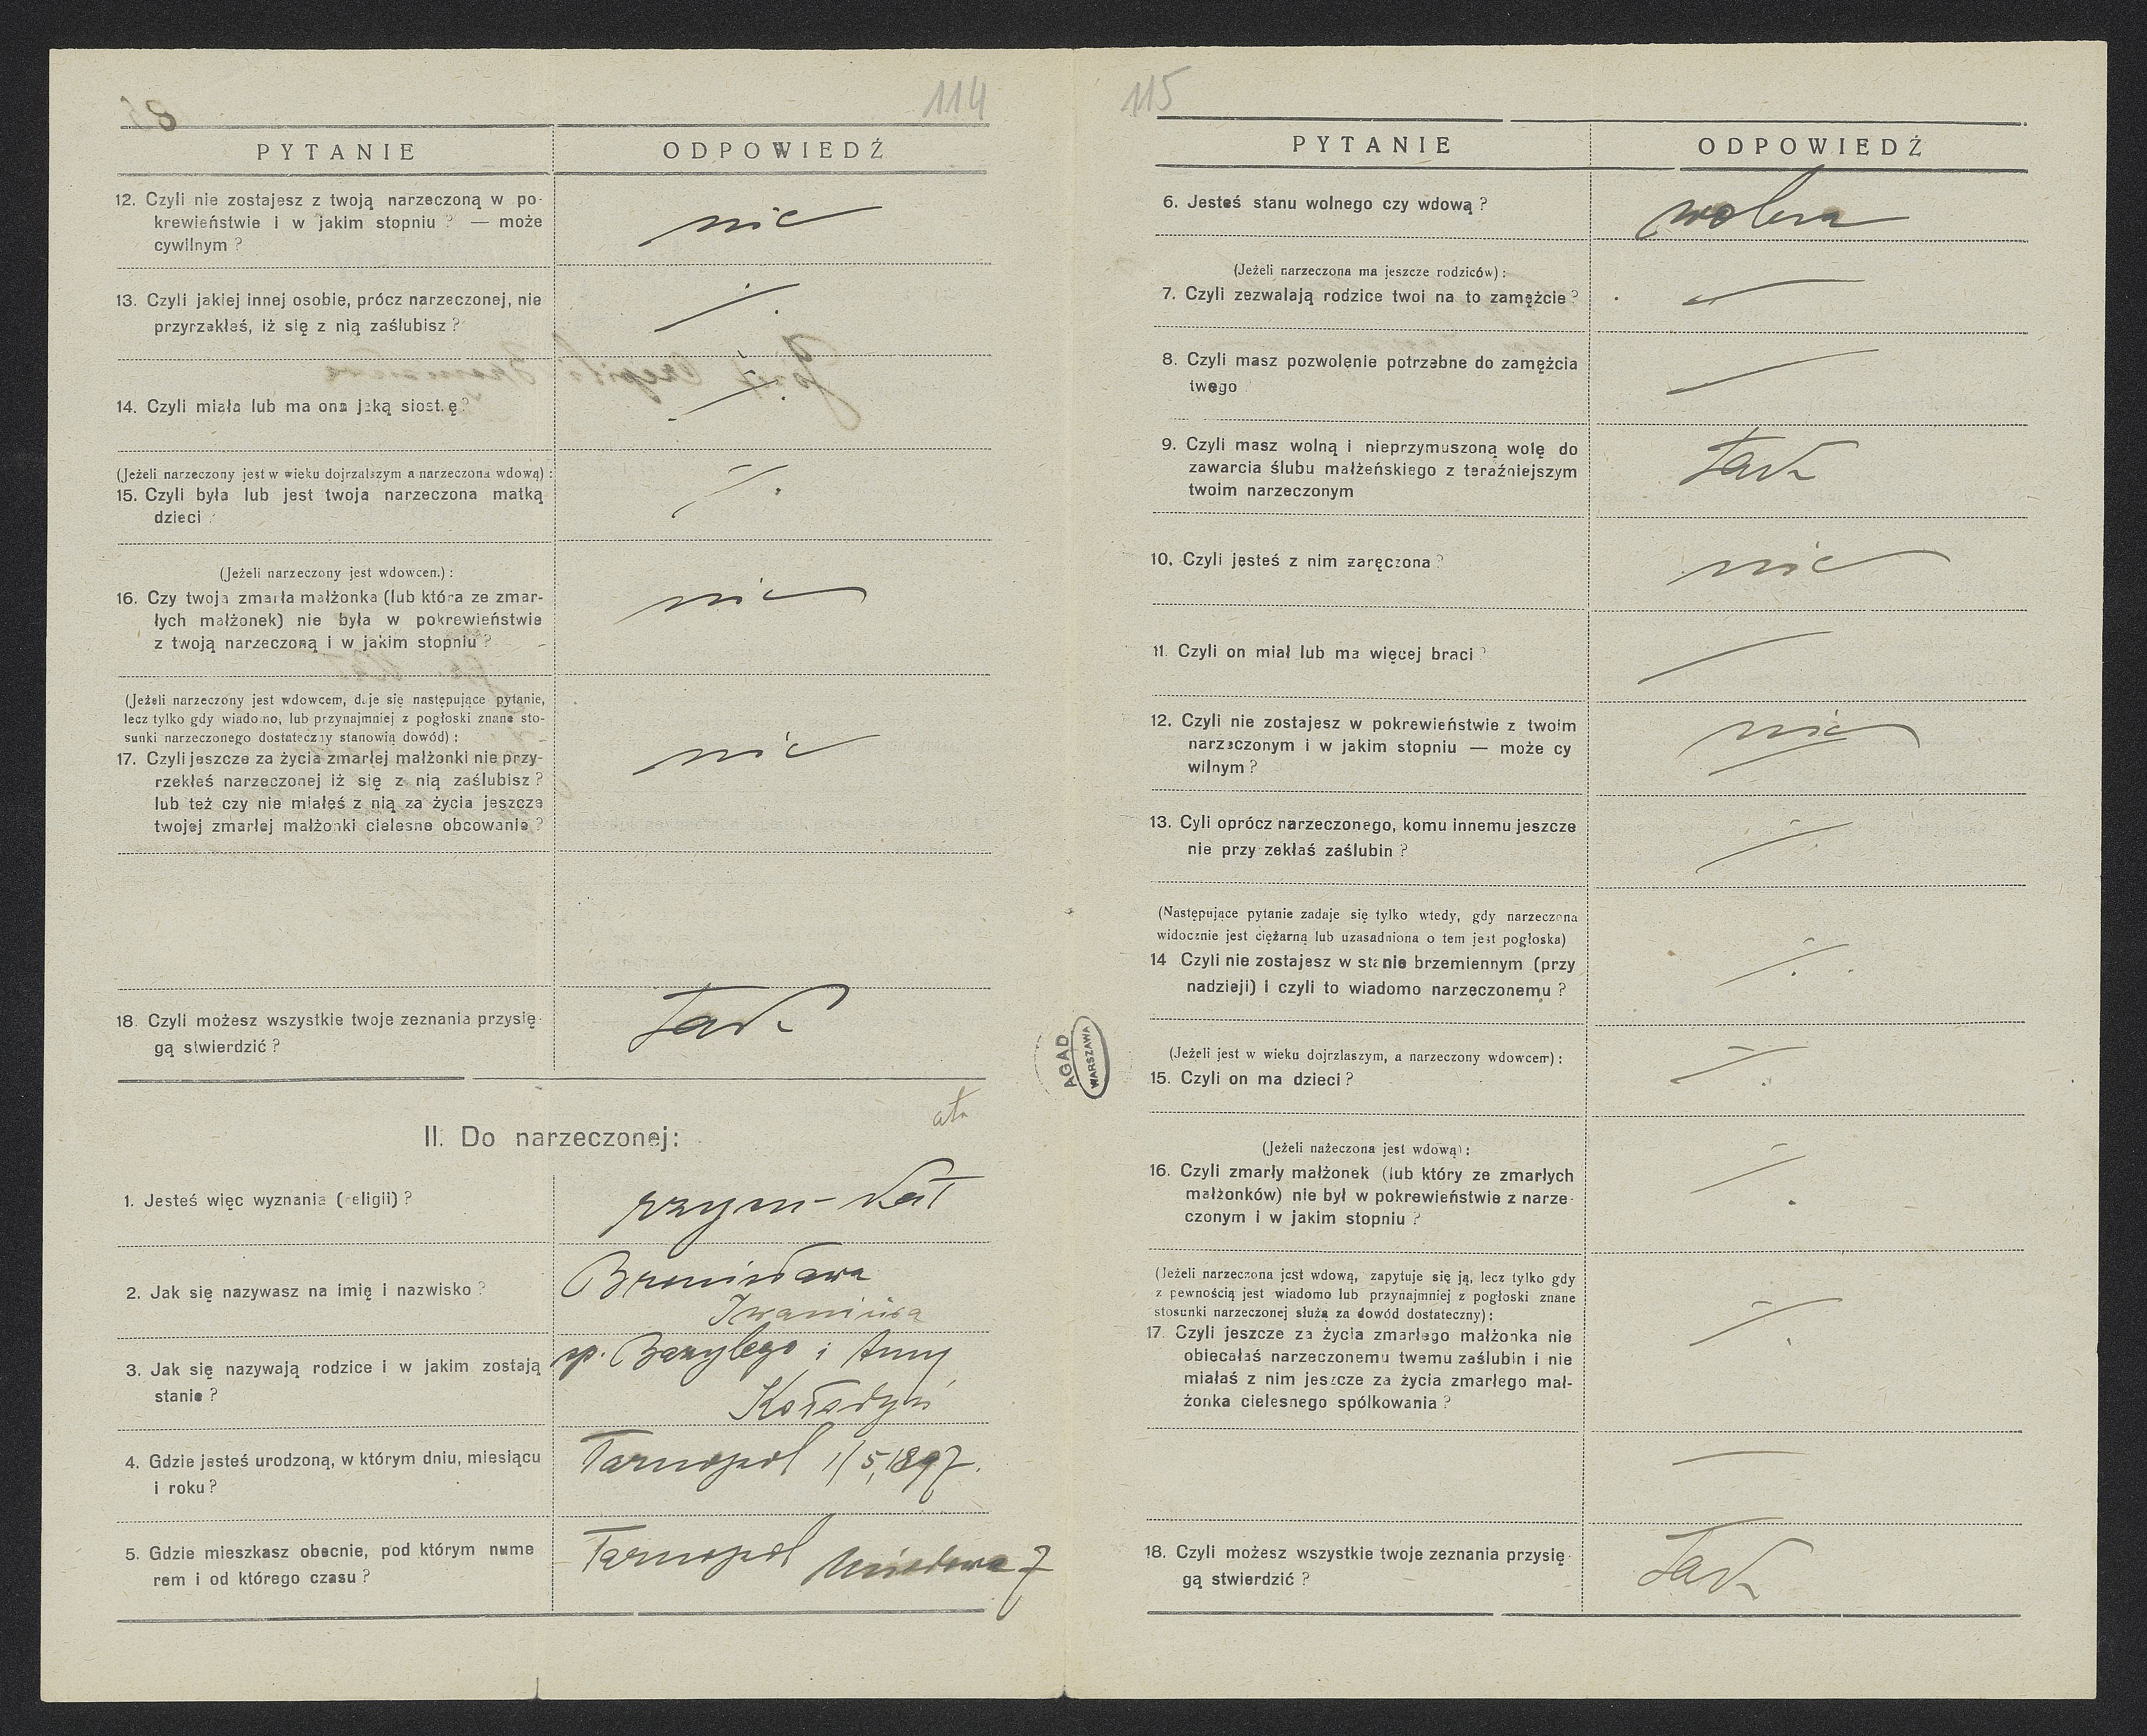 114
PYTANIE
ODPOWIEDŹ
12. Czyli nie zostajesz z twoją narzeczoną w po-
krewieństwie i w jakim stopniu ? — może
cywilnym ?
nie
13. Czyli jakiej innej osobie, prócz narzeczonej, nie
przyrzekłeś, iż się z nią zaślubisz ?
14. Czyli miała lub ma ona jaką siostrę ?
(Jeżeli narzeczony jest w wieku dojrzalszym a narzeczona wdową) :
15. Czyli była lub jest twoja narzeczona matką
dzieci ?
(Jeżeli narzeczony jest wdowcem.) :
16. Czy twoja zmarła małżonka (lub która ze zmar-
łych małżonek) nie była w pokrewieństwie
z twoją narzeczoną i w jakim stopniu ?
nie
(Jeżeli narzeczony jest wdowcem, daje się następujące pytanie,
lecz tylko gdy wiadomo, lub przynajmniej z pogłoski znane sto-
sunki narzeczonego dostateczny stanowią dowód) :
17. Czyli jeszcze za życia zmarłej małżonki nie przy-
rzekłeś narzeczonej iż się z nią zaślubisz ?
lub też czy nie miałeś z nią za życia jeszcze
twojej zmarłej małżonki cielesne obcowanie ?
nie
18. Czyli możesz wszystkie twoje zeznania przysię-
gą stwierdzić ?
Tak
II. Do narzeczonej:
1. Jesteś więc wyznania (religii) ?
rzym-kat
2. Jak się nazywasz na imię i nazwisko ?
Bronisława
3. Jak się nazywają rodzice i w jakim zostają
stanie ?
Bazylego i Anny
Kołodyń
4. Gdzie jesteś urodzoną, w którym dniu, miesiącu
i roku ?
Tarnopol 1/5, 1897.
5. Gdzie mieszkasz obecnie, pod którym nume
rem i od którego czasu ?
Tarnopol Miodowa 7
115
PYTANIE
ODPOWIEDŹ
6. Jesteś stanu wolnego czy wdową ?
wolna
(Jeżeli narzeczona ma jeszcze rodziców) :
7. Czyli zezwalają rodzice twoi na to zamęźcie ?
8. Czyli masz pozwolenie potrzebne do zamęźcia
twego ?
9. Czyli masz wolną i nieprzymuszoną wolę do
zawarcia ślubu małżeńskiego z teraźniejszym
twoim narzeczonym
Tak
10. Czyli jesteś z nim zaręczona ?
nie
11. Czyli on miał lub ma więcej braci ?
12. Czyli nie zostajesz w pokrewieństwie z twoim
narzeczonym i w jakim stopniu — może cy
wilnym ?
nie
13. Cyli oprócz narzeczonego, komu innemu jeszcze
nie przy zekłaś zaślubin ?
(Następujące pytanie zadaje się tylko wtedy, gdy narzeczona
widocznie jest ciężarną lub uzasadniona o tem jest pogłoska)
14 Czyli nie zostajesz w stanie brzemiennym (przy
nadzieji) i czyli to wiadomo narzeczonemu ?
(Jeżeli jest w wieku dojrzlaszym, a narzeczony wdowcem) :
15. Czyli on ma dzieci ?
(Jeżeli nażeczona jest wdową) :
16. Czyli zmarły małżonek (lub który ze zmarłych
małżonków) nie był w pokrewieństwie z narze-
czonym i w jakim stopniu ?
(Jeżeli narzeczona jest wdową, zapytuje się ją, lecz tylko gdy
z pewnością jest wiadomo lub przynajmniej z pogłoski znane
stosunki narzeczonej służą za dowód dostateczny) :
17. Czyli jeszcze za życia zmarłego małżonka nie
obiecałaś narzeczonemu twemu zaślubin i nie
miałaś z nim jeszcze za życia zmarłego mał-
żonka cielesnego spółkowania ?
18. Czyli możesz wszystkie twoje zeznania przysię-
gą stwierdzić ?
Tak
AGAD
WARSZAWA